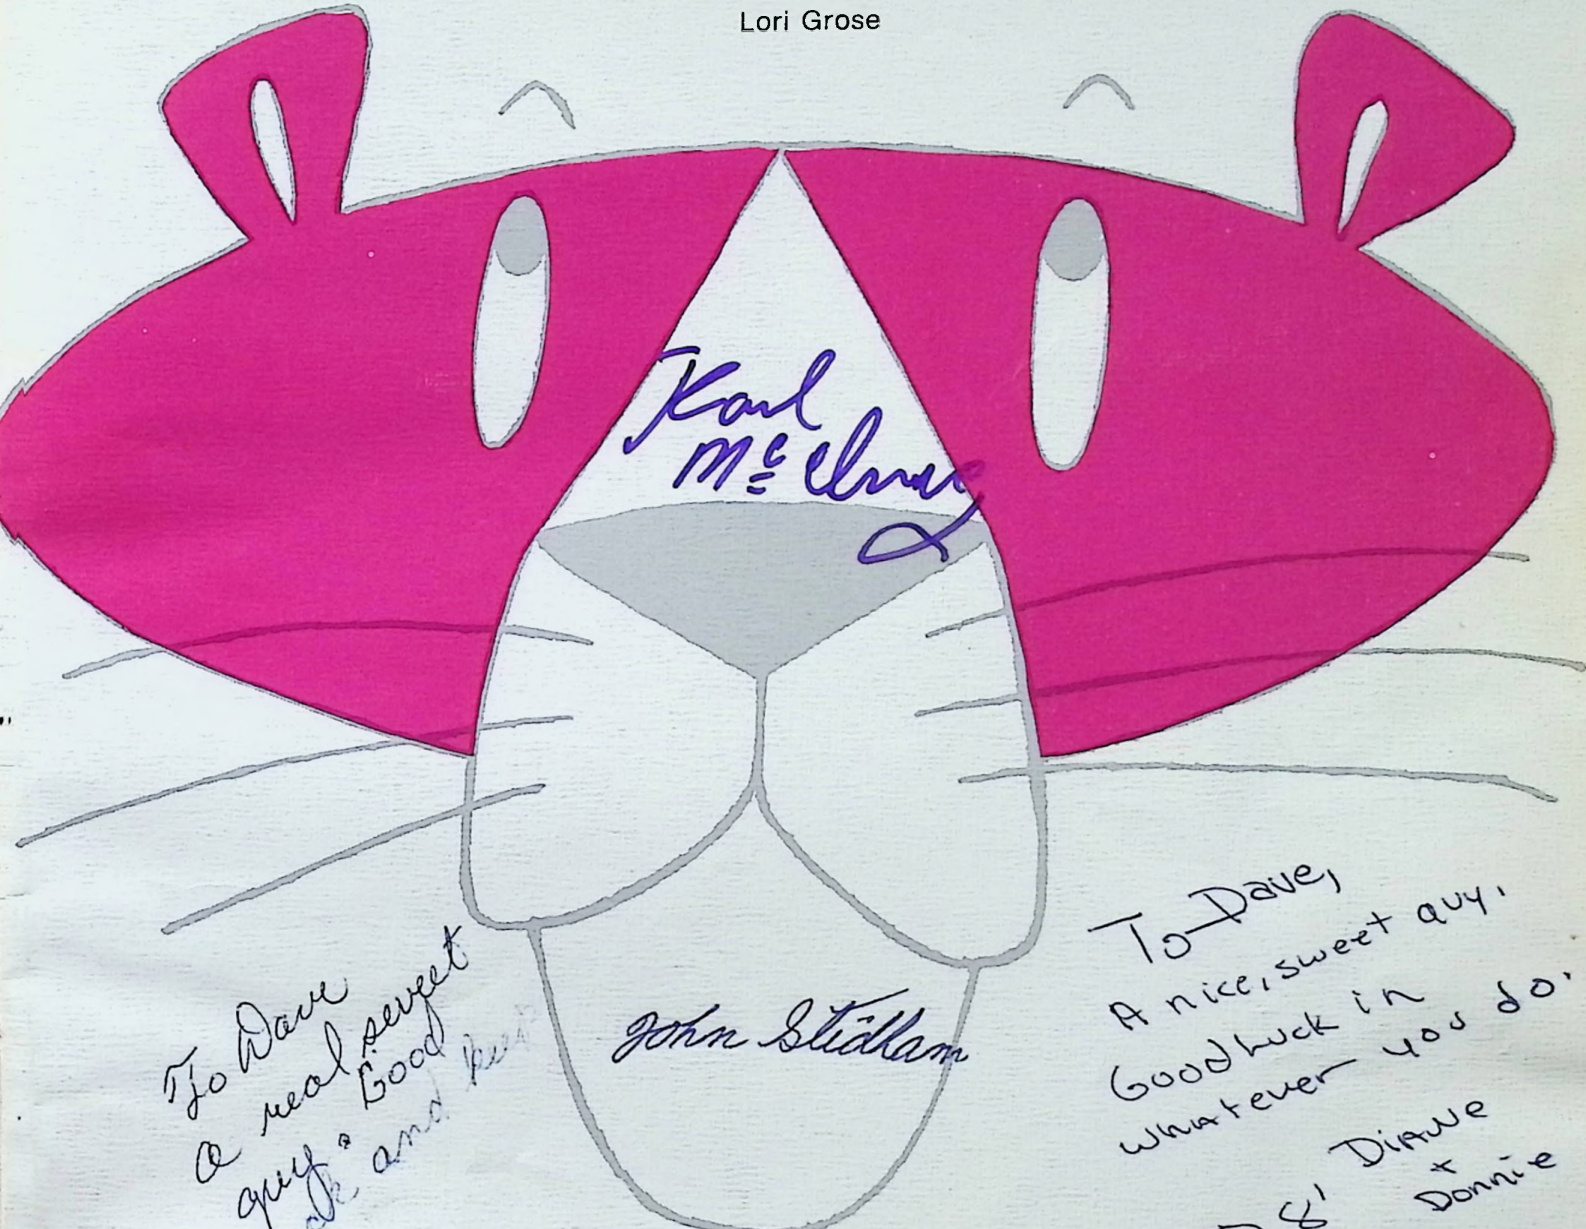 Lori Grose
Karl
John Stidham
To Dave
a real sweet
guy. Good
and
To Dave,
A nice, sweet guy.
Good Luck in
whatever you do.
Diane
+
Donnie